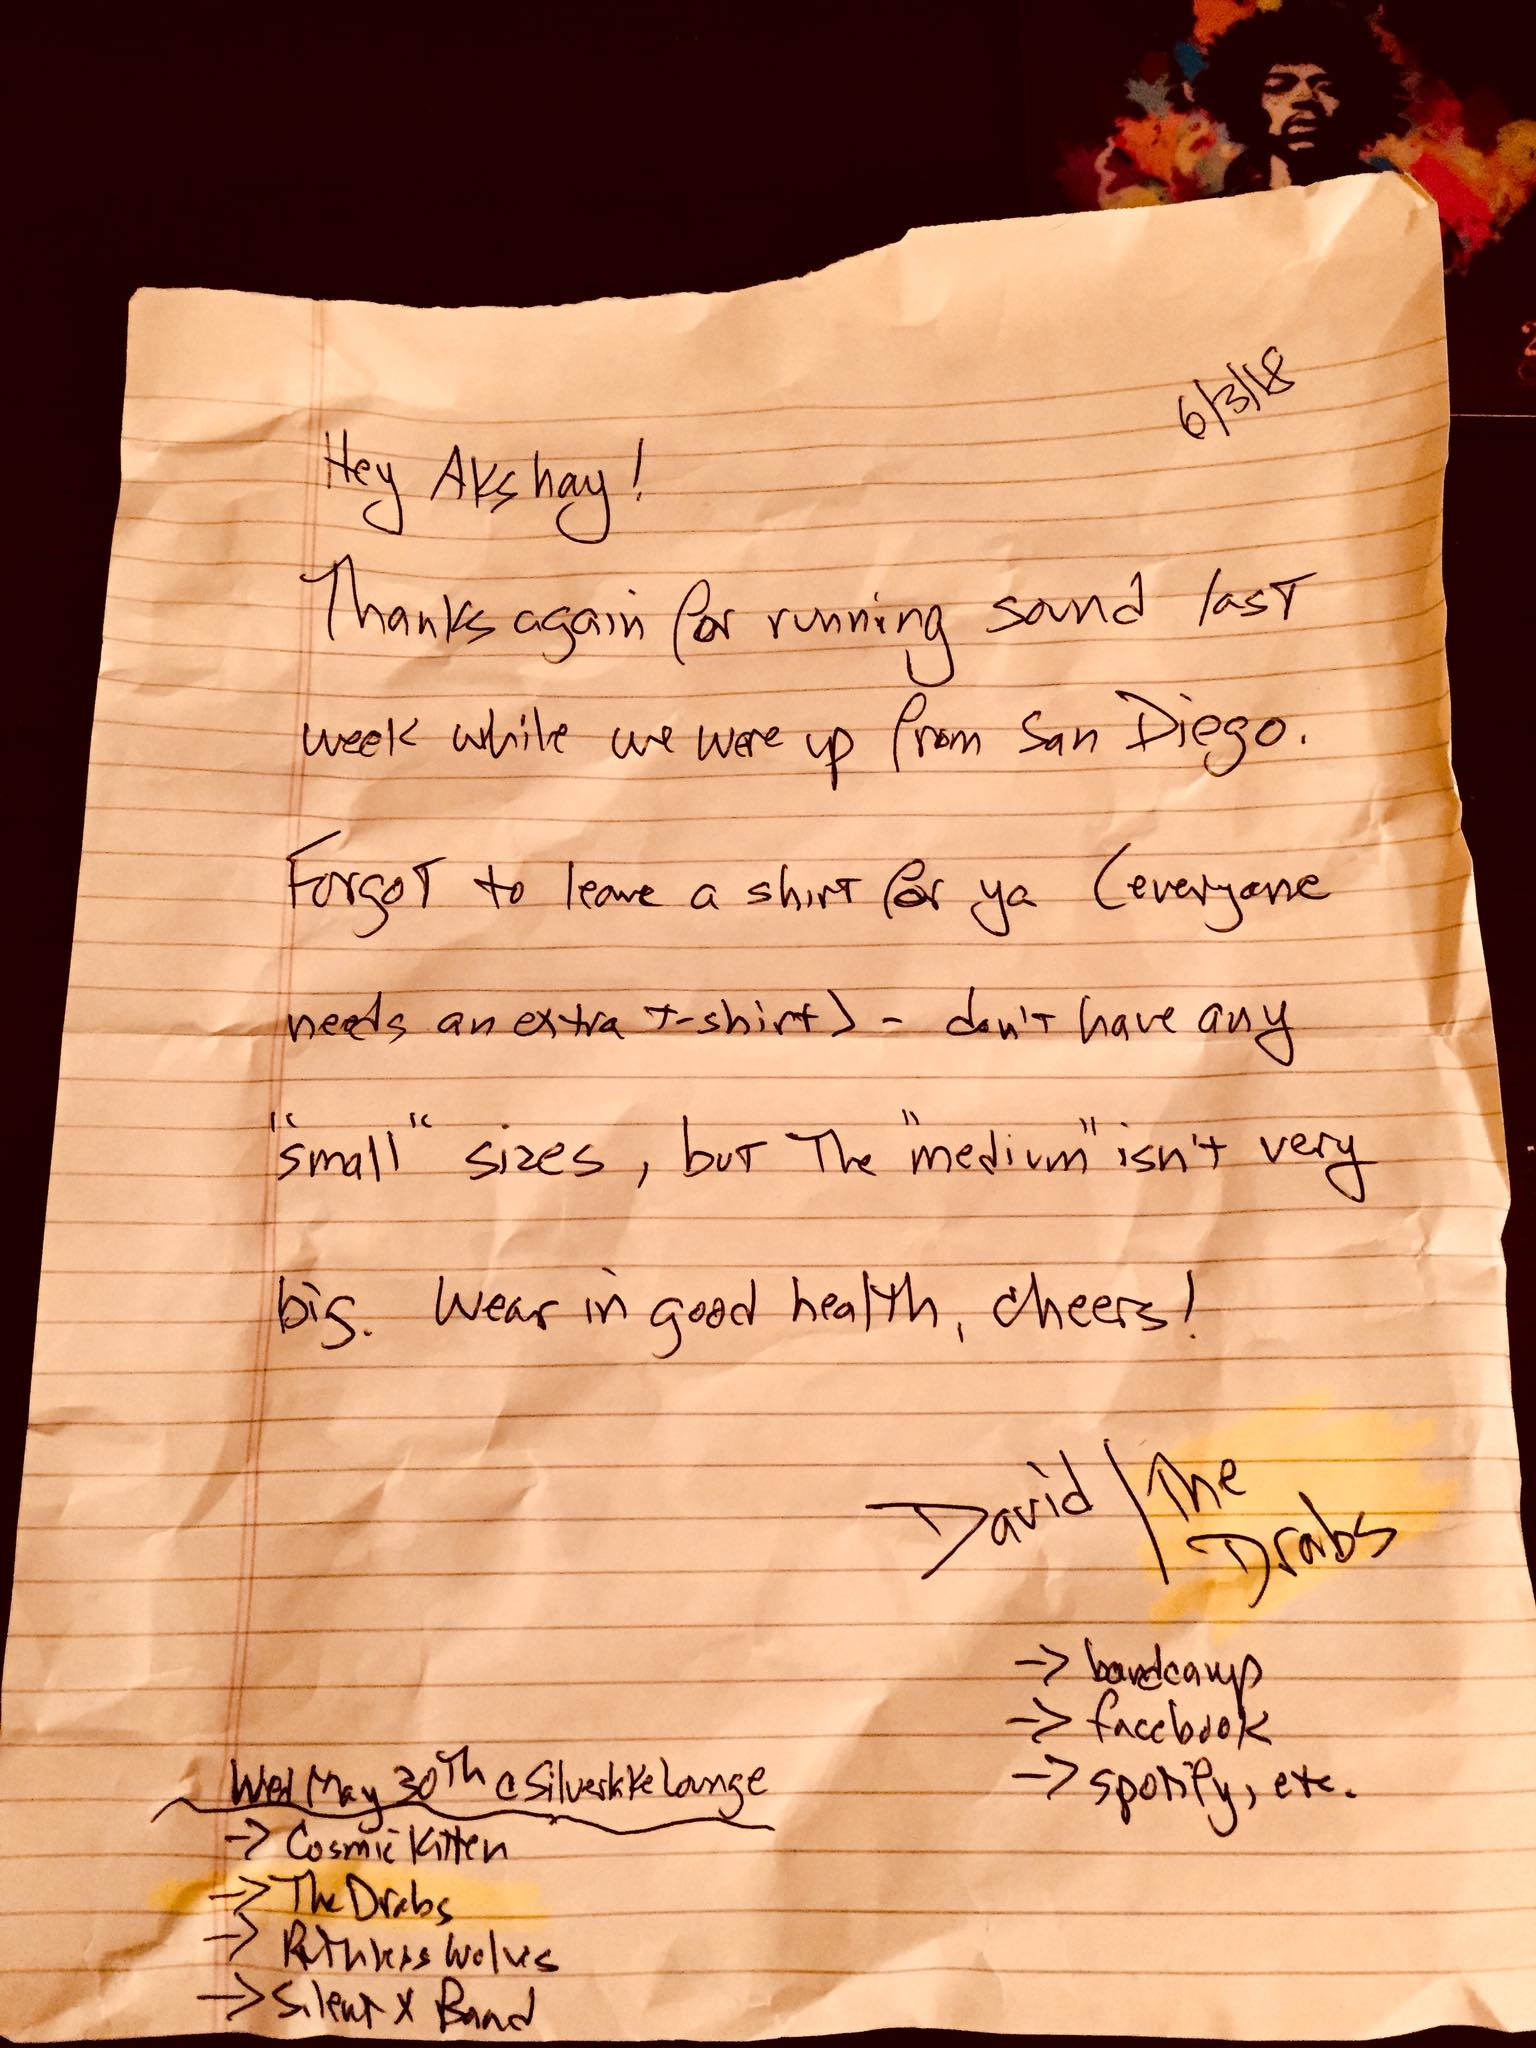 6/3/18
Hey Akshay!
Thanks again for running sound last
week while we were up from San Diego.
Forgot to leave a shirt for ya (everyone
needs an extra t-shirt) - don't have any
"small" sizes, but the "medium" isn't very
big. Wear in good health, cheers!
David / The
Drabs
-> bandcamp
-> facebook
-> spotify, etc.
Wed May 30th @ Silverlake Lounge
-> Cosmic Kitten
-> The Drabs
-> Ruthless Wolves
-> Silent X Band